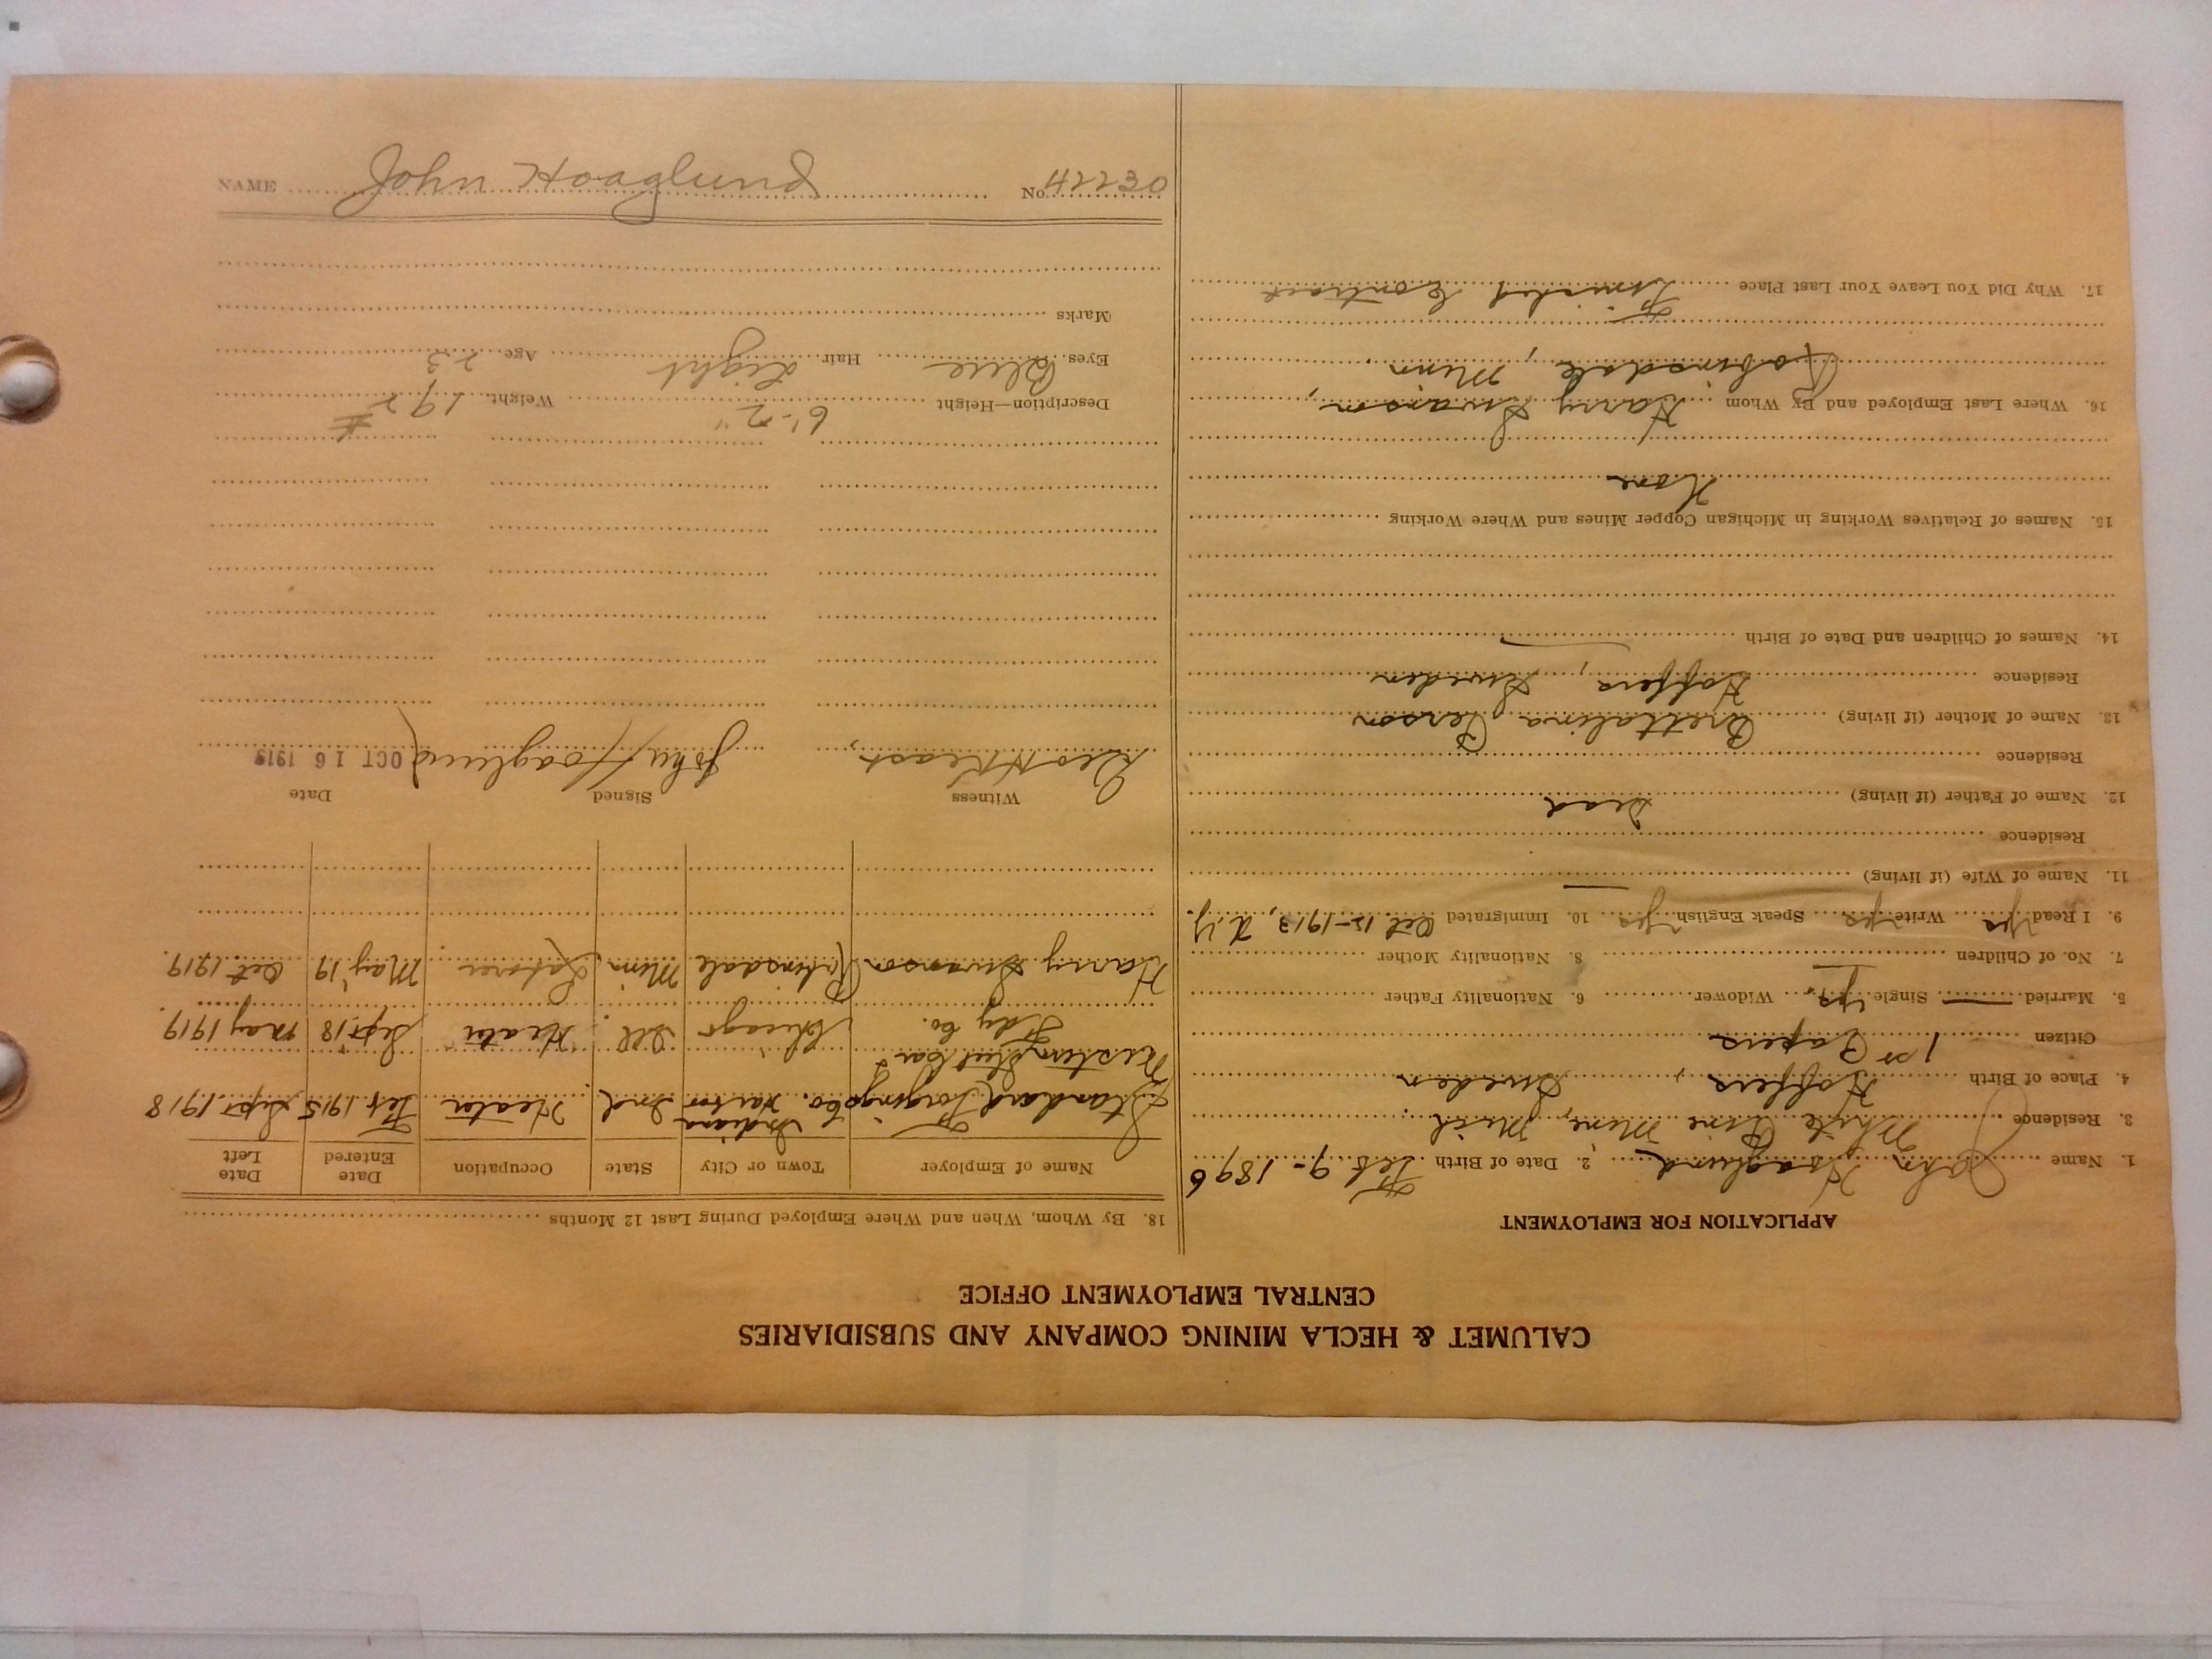 CALUMET & HECLA MINING COMPANY AND SUBSIDIARIES
CENTRAL EMPLOYMENT OFFICE
APPLICATION FOR EMPLOYMENT
1. Name John Hoaglund 2. Date of Birth Feb. 9 - 1896
3. Residence White Pine Mine, Mich.
4. Place of Birth Hoffers, Sweden
Citizen 1st Papers
5. Married — Single yes. Widower 6. Nationality Father
7. No. of Children — 8. Nationality Mother
9. I Read yes Write yes Speak English yes 10. Immigrated Oct. 15-1913, N.Y.
11. Name of Wife (if living) —
Residence
12. Name of Father (if living) Dead
Residence
13. Name of Mother (if living) Person
Residence Hoffers, Sweden
14. Names of Children and Date of Birth —
15. Names of Relatives Working in Michigan Copper Mines and Where Working
None
16. Where Last Employed and By Whom Harry Swanson,
Robinsdale, Minn.
17. Why Did You Leave Your Last Place Finished Contract
18. By Whom, When and Where Employed During Last 12 Months
Name of Employer Town or City State Occupation Date Entered Date Left
Standard Forgings Co. Indiana Harbor Ind. Heater Feb. 1915 Sept. 1918
Western Steel Car &
Fdy Co. Chicago Ill. Heater Sept. 18 May 1919.
Harry Swanson Robinsdale Minn. Laborer. May '19 Oct. 1919.
Witness Signed Date
Geo H Keast, John Hoaglund OCT 16 1919
Description—Height 6'-2" Weight 192 #
Eyes Blue Hair Light Age 23
Marks
NAME John Hoaglund No. 42230